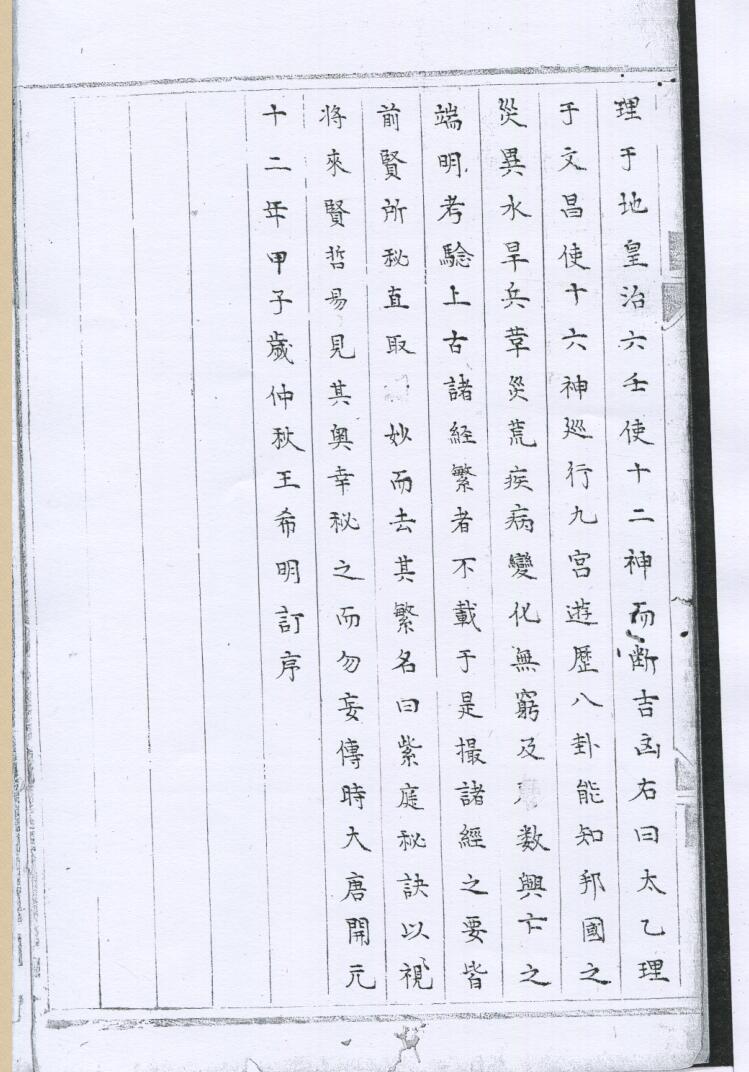 理于地皇治六壬使十二神而断吉凾右曰太乙理
于文昌使十六神廵行九宮遊歷八卦能知邦國之
災異水旱兵革災荒疾病變化無窮及数興亡之
端明考驗上古諸経繁者不載于是撮諸經之要皆
前賢所秘直取妙而去其繁名曰紫庭秘訣以視
將來賢哲易見其奧幸秘之而勿妄傳時大唐開元
十二年甲子歲仲秋王希明訂序